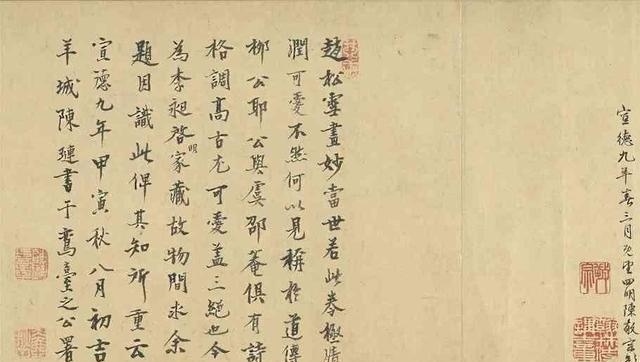 宣德九年春三月既望四明陳敬宗
趙松雪畫妙當世若此卷極清
潤可愛不然何以見稱於道傳
柳公耶公與虞邵菴俱有詩
格調高古尤可愛蓋三絕也今
為李昶啓明家藏故物間求余
題因識此俾其知所重云
宣德九年甲寅秋八月初吉
羊城陳璉書于鸞臺之公署